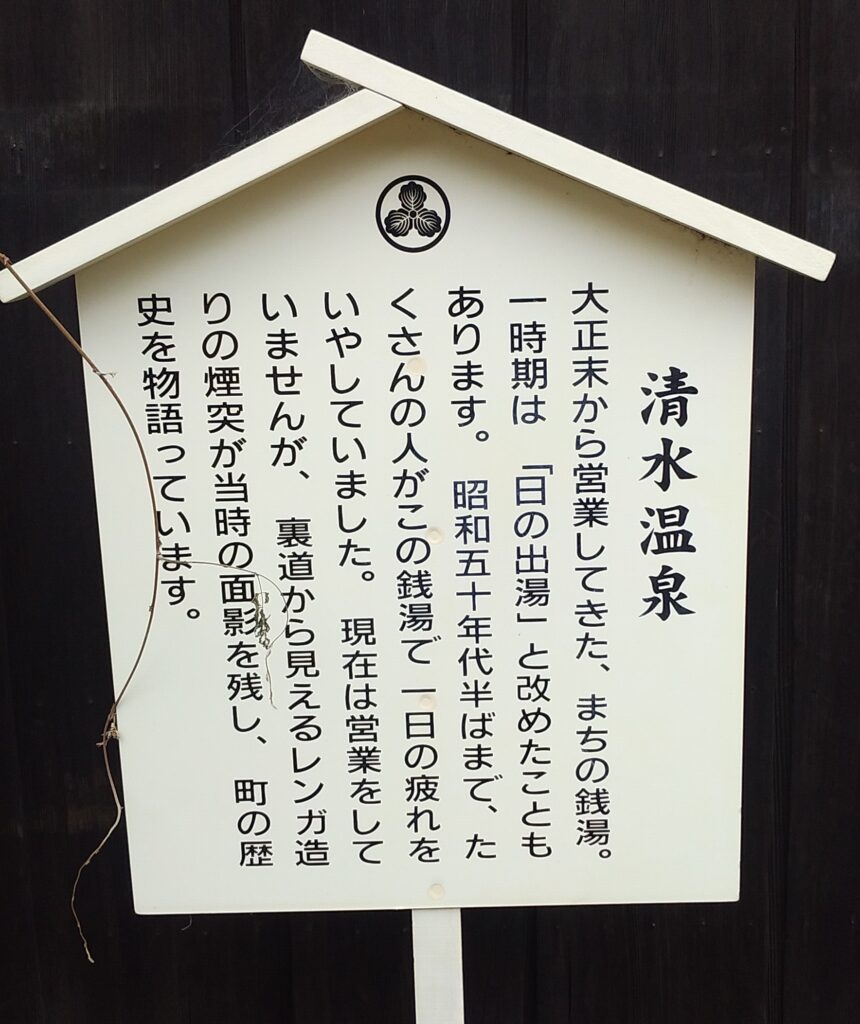 清水温泉
大正末から営業してきた、まちの銭湯。
一時期は「日の出湯」と改めたことも
あります。昭和五十年代半ばまで、た
くさんの人がこの銭湯で一日の疲れを
いやしていました。現在は営業をして
いませんが、裏道から見えるレンガ造
りの煙突が当時の面影を残し、町の歴
史を物語っています。